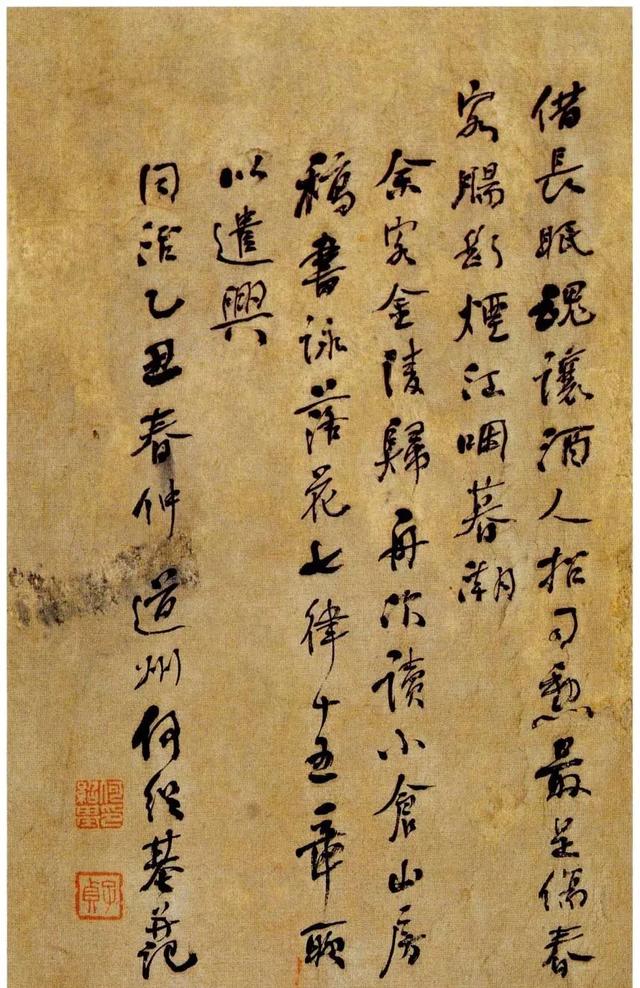 借長眠魂讓酒人招司勳最是傷春
客腸斷煙江咽暮潮
余客金陵歸舟次讀小倉山房
稿書詠落花七律十五章聊
以遣興
同治乙丑春仲 道州何紹基
子貞